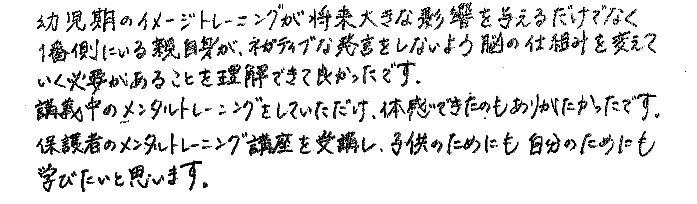 幼児期のイメージトレーニングが将来大きな影響を与えるだけでなく
1番側にいる親自身が、ネガティブな発言をしないよう脳の仕組みを変えて
いく必要があることを理解できて良かったです。
講義中のメンタルトレーニングをしていただけ、体感できたのもありがたかったです。
保護者のメンタルトレーニング講座を受講し、子供のためにも自分のためにも
学びたいと思います。